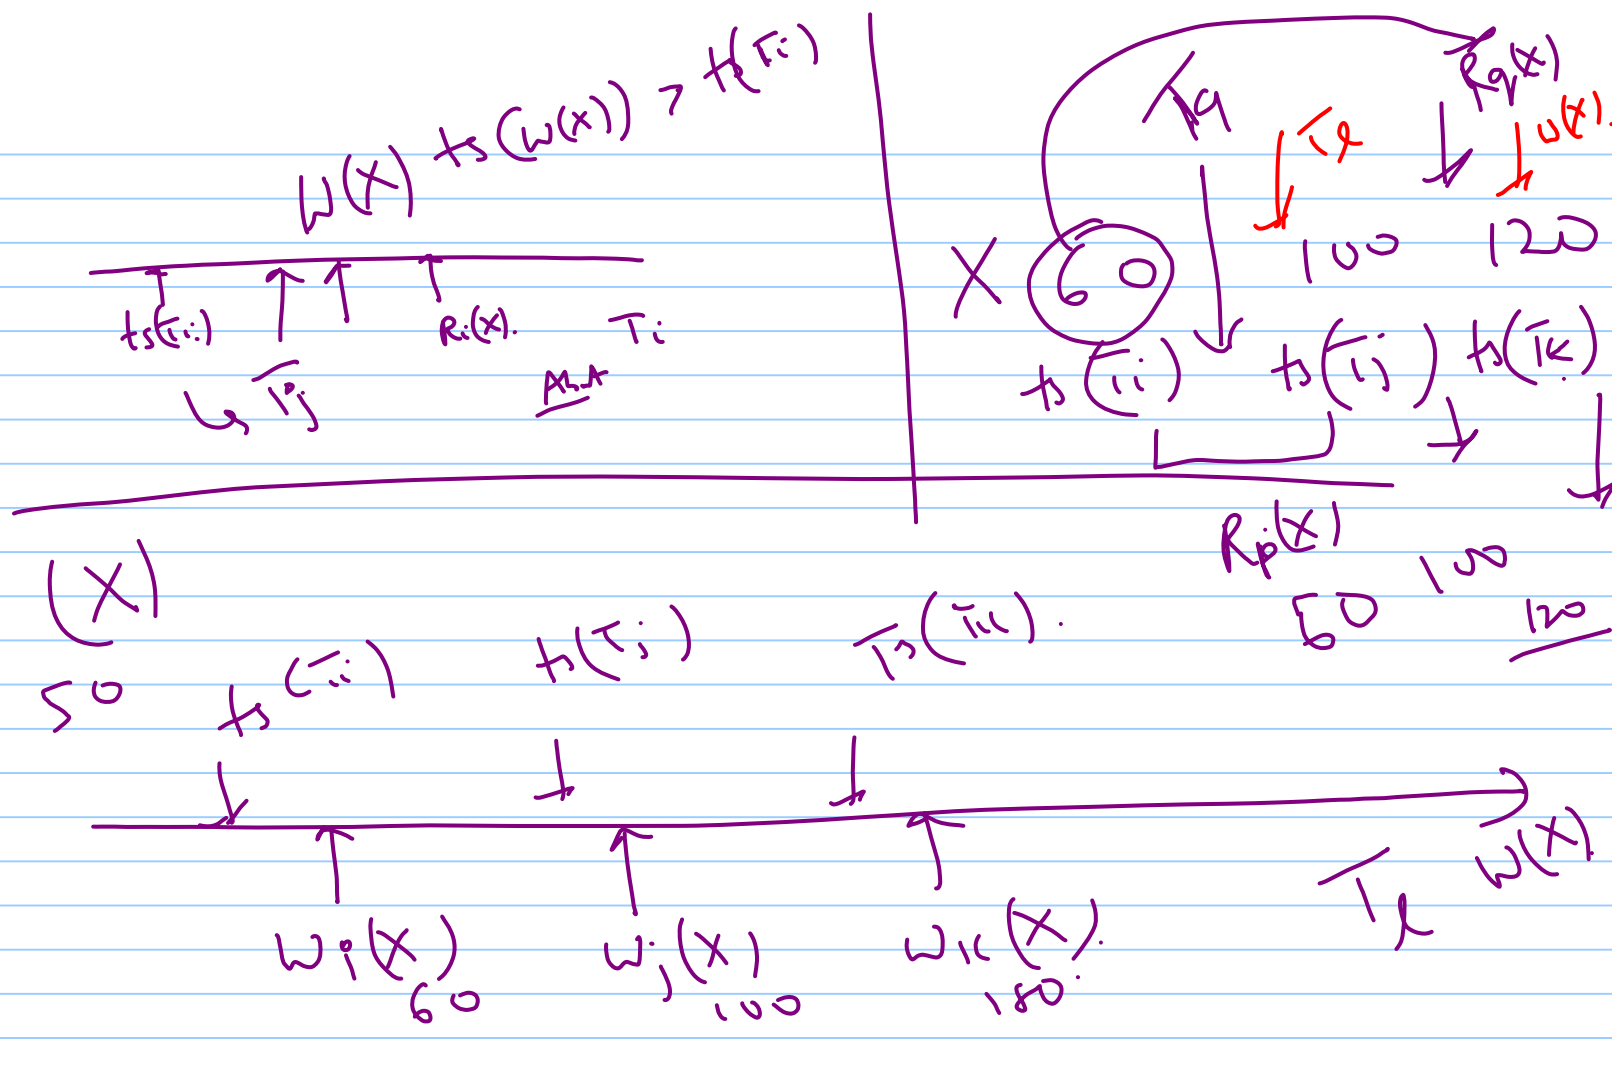 W(X) ts(W(X)) > ts(Ti)
ts(Ti) Ri(X). Ti
Tj
Tq Rq(X)
Tl W(X).
X 60 100 120
ts(Ti) ts(Tj) ts(Tk)
Rp(X)
60 100 120
(X)
50 ts(Ti) ts(Tj) Ts(Tk).
Wi(X) Wj(X) Wk(X). Tl W(X).
60 100 180.